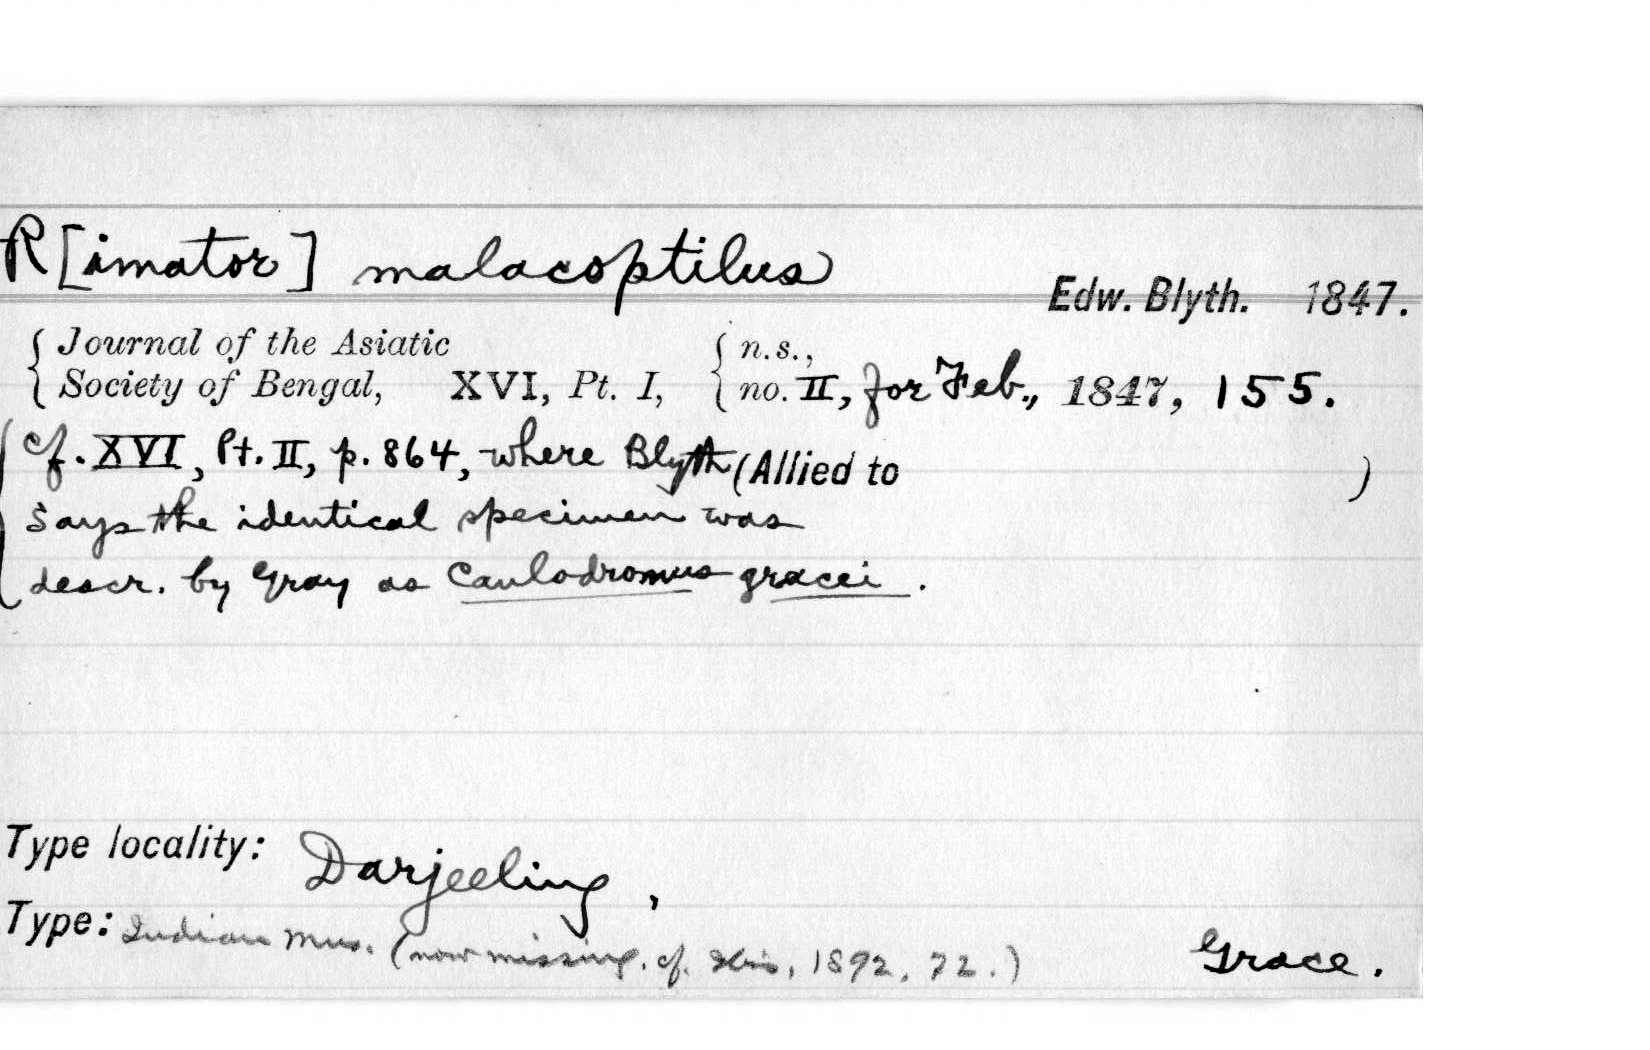 R[imator] malacoptilus
Edw. Blyth. 1847.
Journal of the Asiatic Society of Bengal, XVI, Pt. I, n.s., no. II, for Feb., 1847, 155.
cf. XVI, Pt. II, p. 864, where Blyth (Allied to )
says the identical specimen was
descr. by Gray as Caulodromus gracei.
Type locality: Darjeeling,
Type: Indian Mus. (now missing. cf. Ibis, 1892, 72.)
Grace.